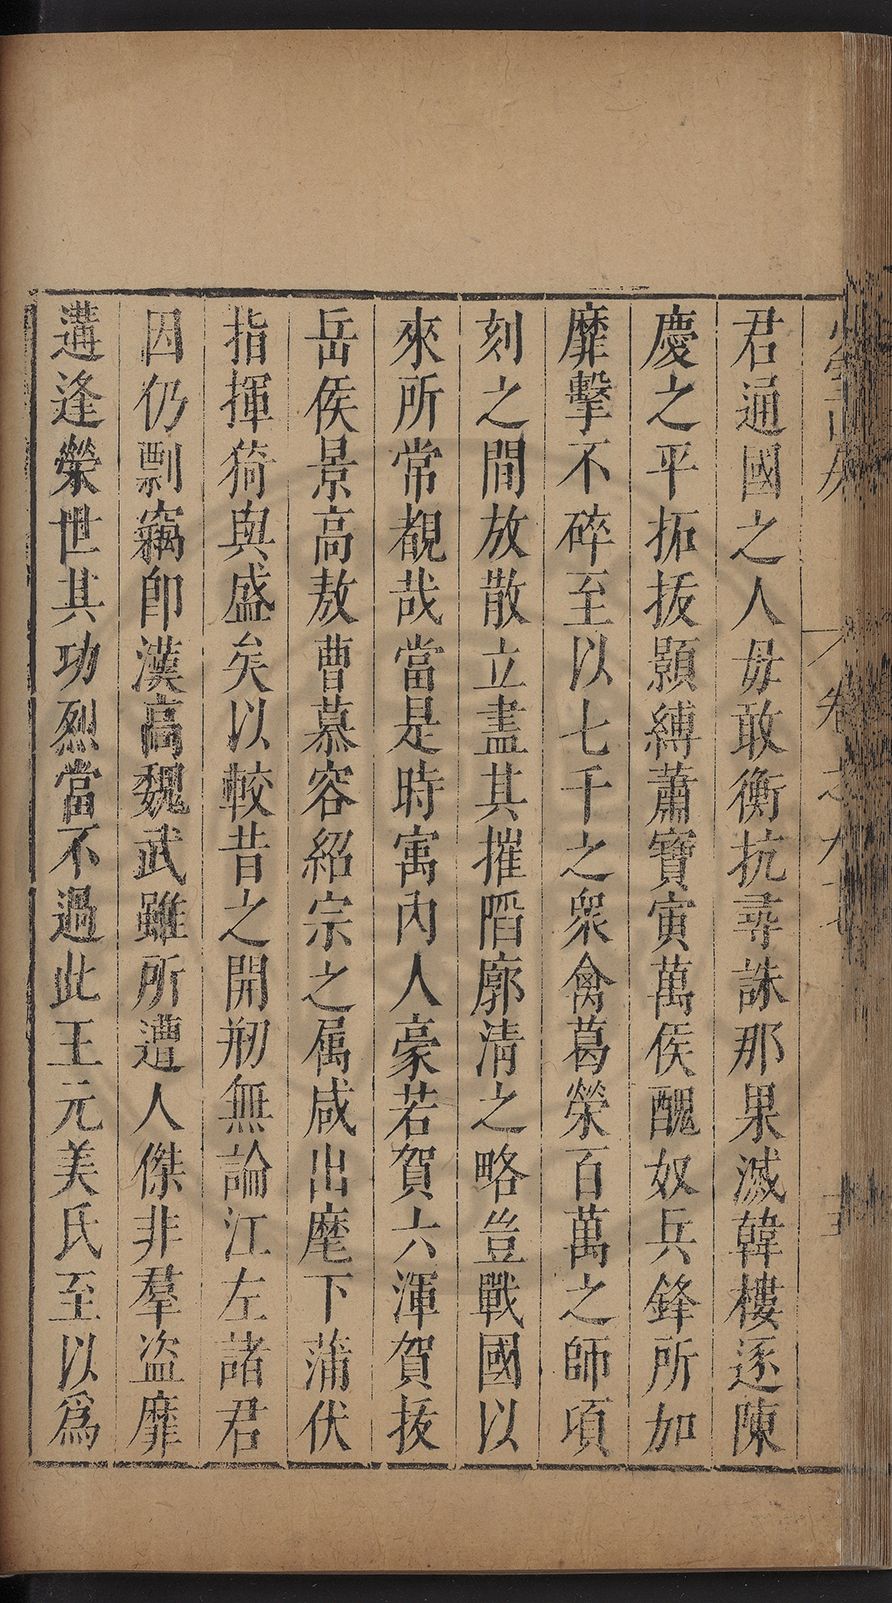 君通國之人毋敢衡抗尋誅那果滅韓樓逐陳
慶之平拓拔顥縛蕭寶寅萬俟醜奴兵鋒所加
靡擊不碎至以七千之衆禽葛榮百萬之師項
刻之間放散立盡其摧䧟廓清之略豈戰國以
來所常覩哉當是時寓內人豪若賀六渾賀拔
岳侯景高敖曹慕容紹宗之属咸出麾下蒲伏
指揮猗與盛矣以較昔之開刱無論江左諸君
因仍剽竊卽漢高魏武雖所遭人傑非羣盗靡
遘逢榮世其功烈當不過此王元美氏至以爲
卷之九十